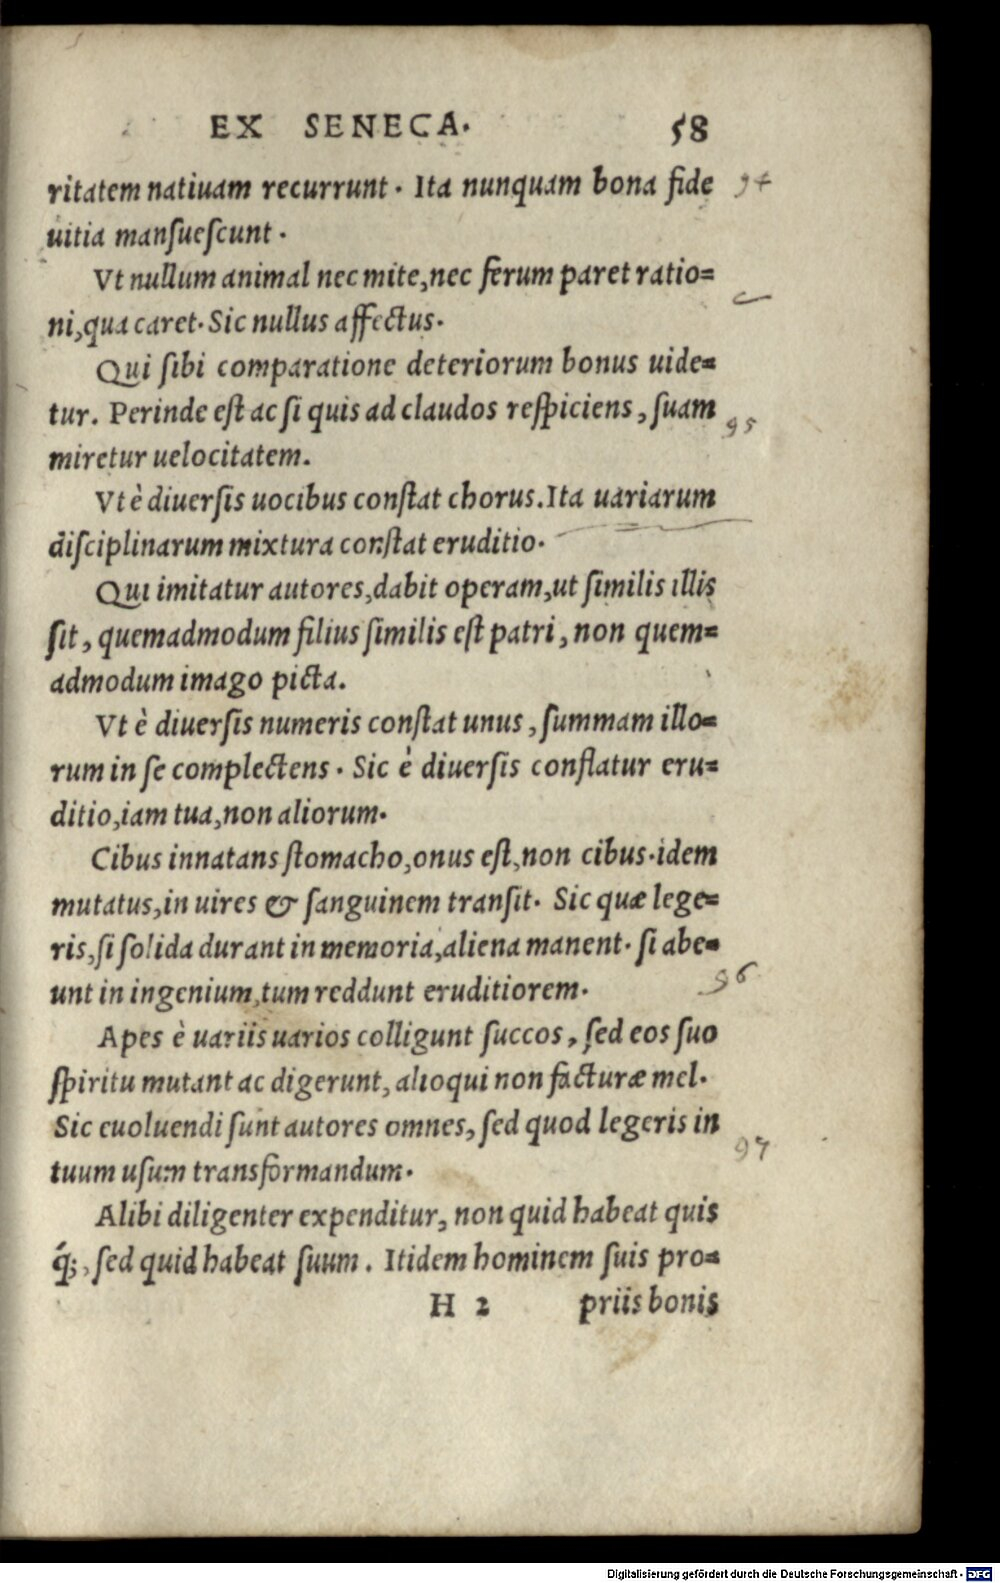 EX SENECA. 58
ritatem natiuam recurrunt. Ita nunquam bona fide 94
uitia manſueſcunt.
Vt nullum animal nec mite, nec ferum paret ratio=
ni, qua caret. Sic nullus affectus.
Qui ſibi comparatione deteriorum bonus uide=
tur. Perinde eſt ac ſi quis ad claudos reſpiciens, ſuam 95
miretur uelocitatem.
Vt è diuerſis uocibus conſtat chorus. Ita uariarum
diſciplinarum mixtura conſtat eruditio.
Qui imitatur autores, dabit operam, ut ſimilis illis
ſit, quemadmodum filius ſimilis eſt patri, non quem=
admodum imago picta.
Vt è diuerſis numeris conſtat unus, ſummam illo=
rum in ſe complectens. Sic è diuerſis conflatur eru=
ditio, iam tua, non aliorum.
Cibus innatans ſtomacho, onus eſt, non cibus. idem
mutatus, in uires & ſanguinem tranſit. Sic quæ lege=
ris, ſi ſolida durant in memoria, aliena manent. ſi abe=
unt in ingenium, tum reddunt eruditiorem. 96
Apes è uariis uarios colligunt ſuccos, ſed eos ſuo
ſpiritu mutant ac digerunt, alioqui non facturæ mel.
Sic euoluendi ſunt autores omnes, ſed quod legeris in
tuum uſum transformandum. 97
Alibi diligenter expenditur, non quid habeat quis
q́;, ſed quid habeat ſuum. Itidem hominem ſuis pro=
H 2 priis bonis
Digitalisierung gefördert durch die Deutsche Forschungsgemeinschaft - DFG